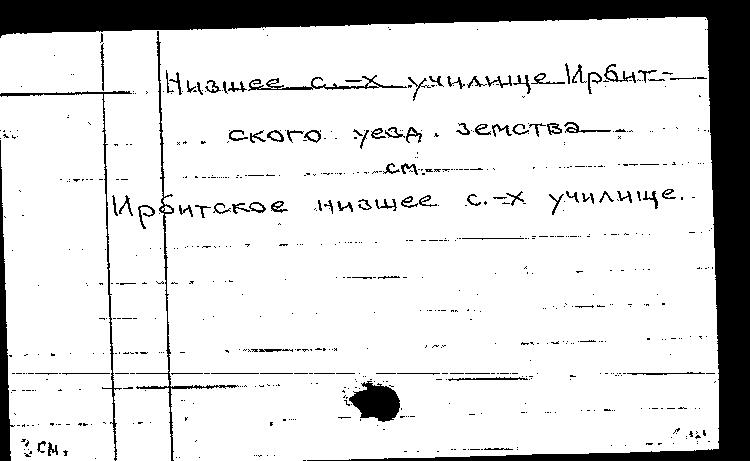 Низшее с.-х училище Ирбит-
ского уезд. земства
см.
Ирбитское низшее с.-х училище.
3 см.